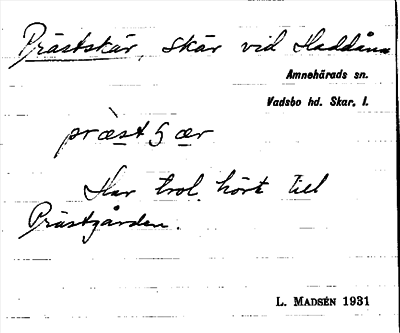 Prästskär, skär vid Haddåna
Amnehärads sn.
Vadsbo hd. Skar. l.
præst ʃær
Har trol. hört till
Prästgården.
L. MADSÉN 1931